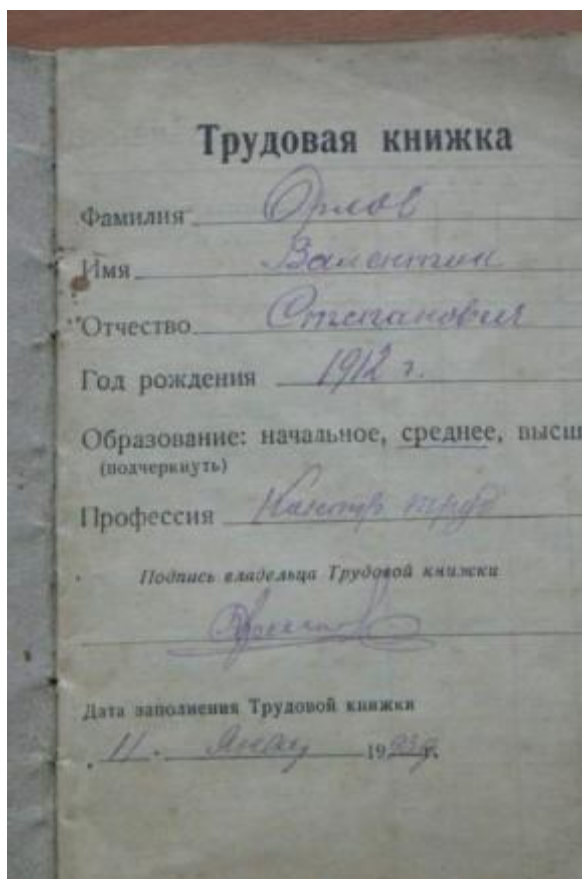 Трудовая книжка
Фамилия Орлов
Имя Валентин
Отчество Степанович
Год рождения 1912 г.
Образование: начальное, среднее, высш
(подчеркнуть)
Профессия
Подпись владельца Трудовой книжки
Дата заполнения Трудовой книжки
11. 1939г.